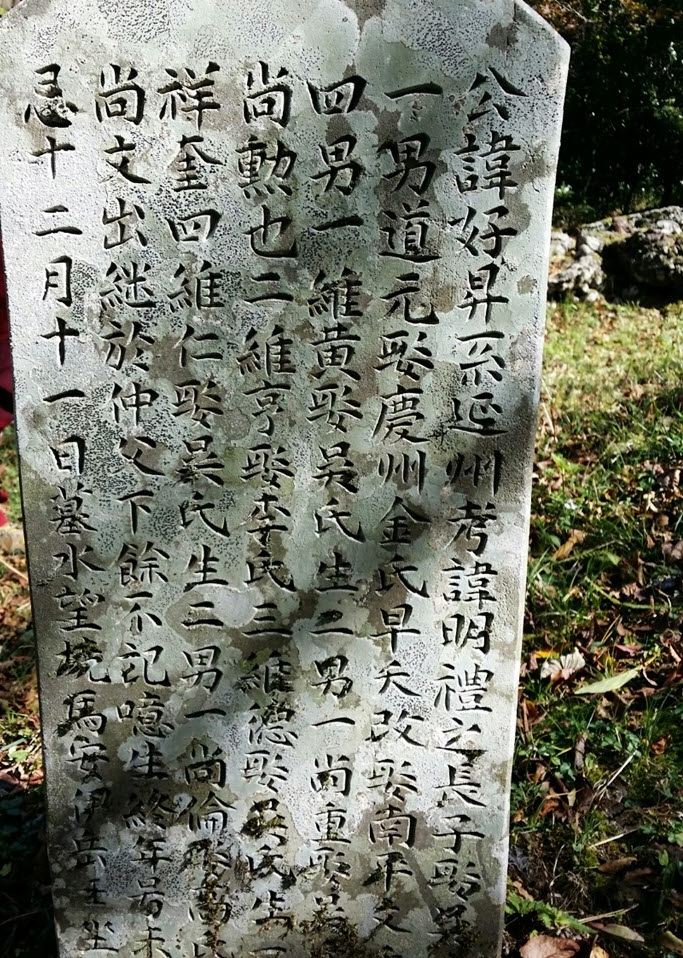 公諱好昇系延州考諱明禮之長子娶吳
一男道元娶慶州金氏早夭改娶南平文
四男一維黃娶吳氏生二男一尚重娶吳
尚勲也二維亨娶李氏三維德娶吳氏生
祥奎四維仁娶吳氏生二男一尚倫娶高氏
尚文出継於仲父下餘不記噫生終年号未
忌十二月十一日墓水望境馬安伊岳壬坐